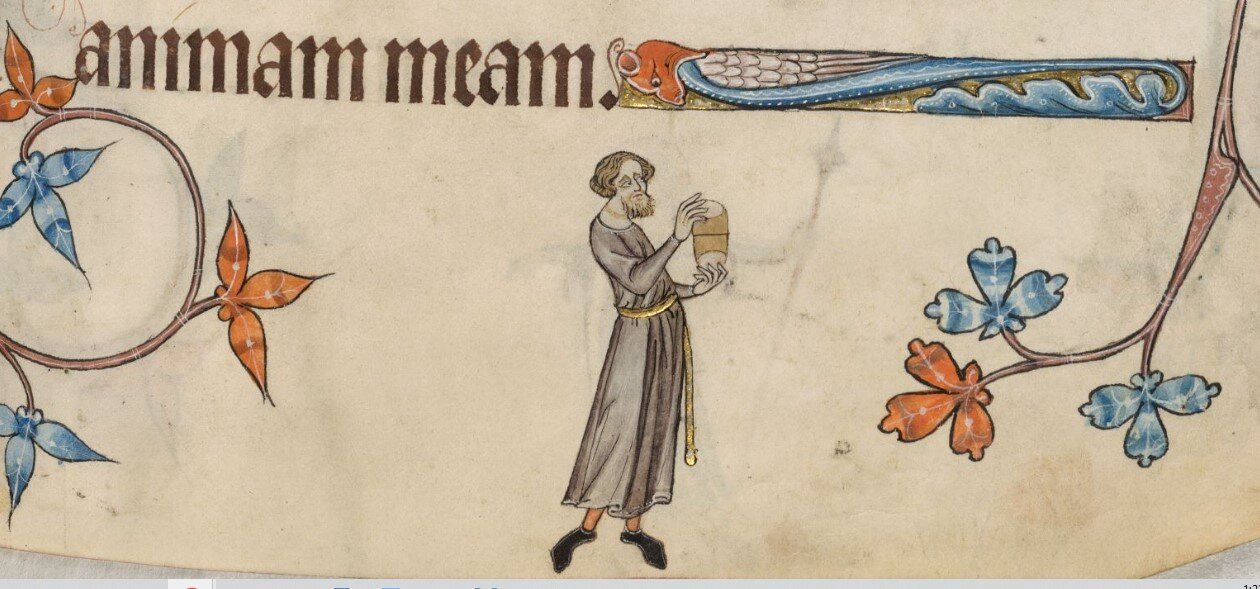 animam meam.